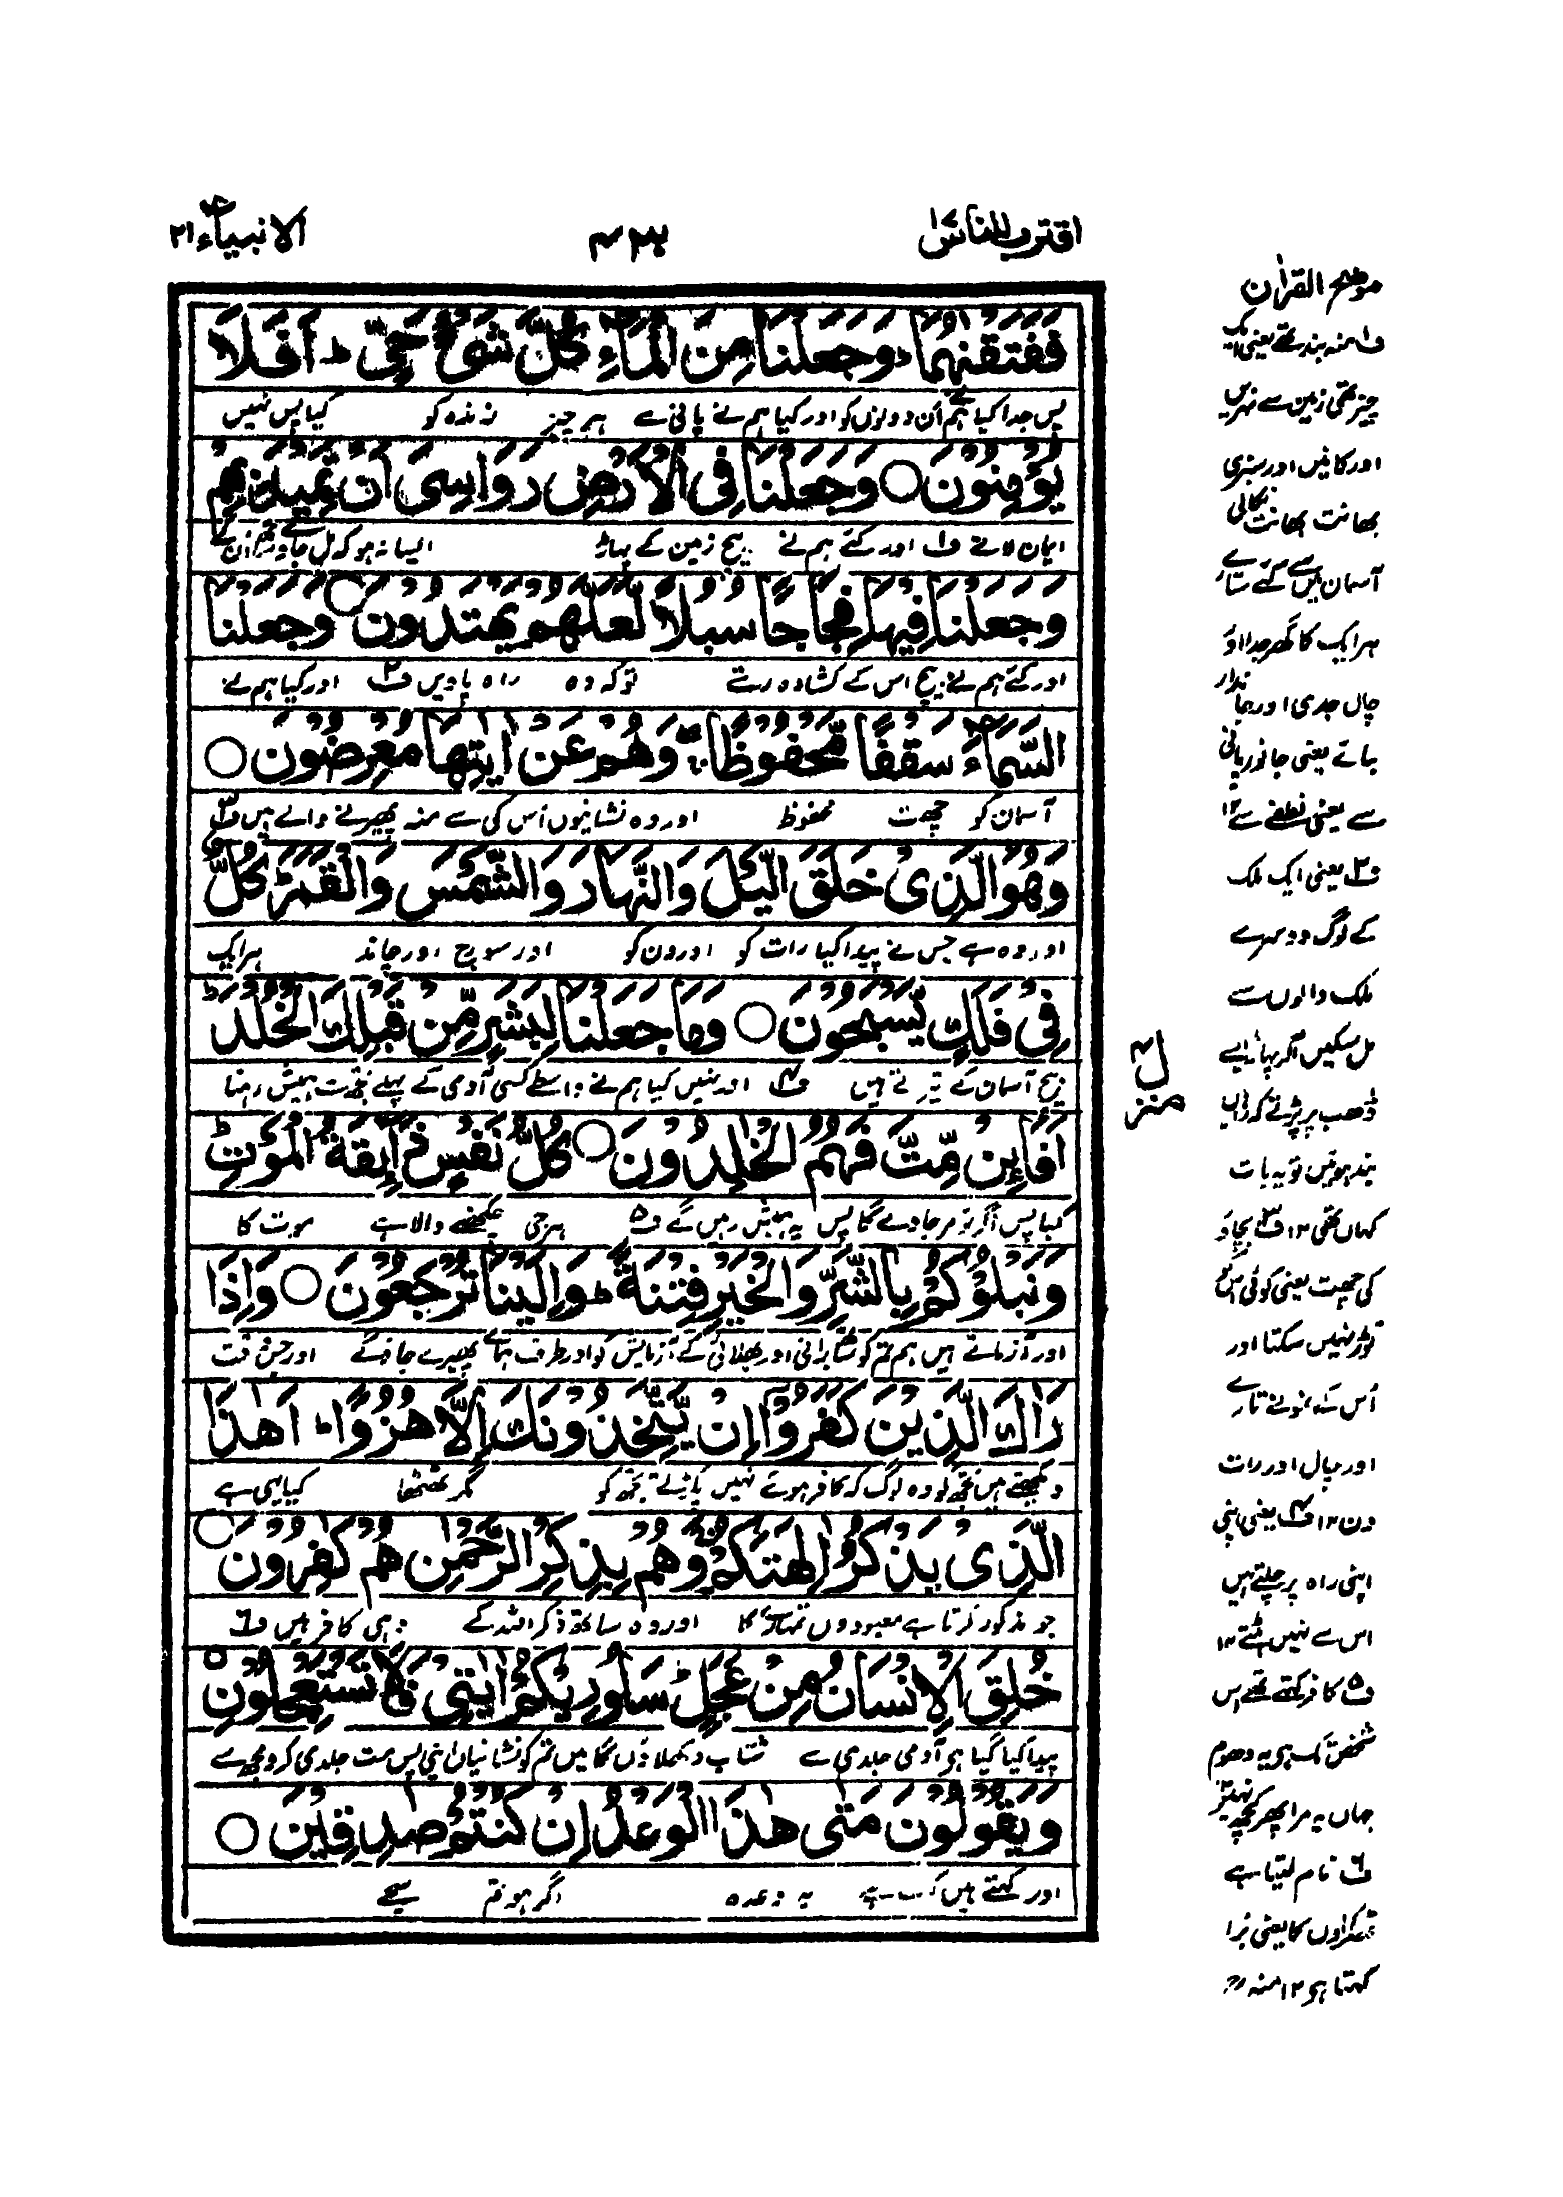 اقترب للناس ١٧
٤٢٣
الانبیاء ٢١
فَفَتَقْنٰهُمَا ؕ وَجَعَلْنَا مِنَ الْمَآءِ كُلَّ شَیْءٍ حَیٍّ ؕ اَفَلَا
پس جدا کیا ہم نے اُن دونوں کو اور کیا ہم نے پانی سے ہر چیز زندہ کو کیا پس نہیں
یُؤْمِنُوْنَ ○ وَجَعَلْنَا فِی الْاَرْضِ رَوَاسِیَ اَنْ تَمِیْدَ بِهِمْ
ایمان لاتے ف١ اور کئے ہم نے بیچ زمین کے پہاڑ ایسا نہ ہو کہ ہل جاوے
وَجَعَلْنَا فِیْهَا فِجَاجًا سُبُلًا لَّعَلَّهُمْ یَهْتَدُوْنَ ○ وَجَعَلْنَا
اور کئے ہم نے بیچ اس کے کشادہ رستے تو کہ وہ راہ پاویں ف٢ اور کیا ہم نے
السَّمَآءَ سَقْفًا مَّحْفُوْظًا ۖۚ وَّهُمْ عَنْ اٰیٰتِهَا مُعْرِضُوْنَ ○
آسمان کو چھت محفوظ اور وہ نشانیوں اُس کی سے منہ پھیرنے والے ہیں ف٣
وَهُوَ الَّذِیْ خَلَقَ الَّیْلَ وَالنَّهَارَ وَالشَّمْسَ وَالْقَمَرَ ؕ كُلٌّ
اور وہ ہے جس نے پیدا کیا رات کو اور دن کو اور سورج اور چاند ہر ایک
فِیْ فَلَكٍ یَّسْبَحُوْنَ ○ وَمَا جَعَلْنَا لِبَشَرٍ مِّنْ قَبْلِكَ الْخُلْدَ ؕ
بیچ آسمان کے تیرتے ہیں ف٤ اور نہیں کیا ہم نے واسطے کسی آدمی کے پہلے تجھ سے ہمیش رہنا
اَفَا۟ئِنْ مِّتَّ فَهُمُ الْخٰلِدُوْنَ ○ كُلُّ نَفْسٍ ذَآئِقَةُ الْمَوْتِ ؕ
کیا پس اگر تو مر جاوے گا پس یہ ہمیش رہیں گے ف٥ ہر جی چکھنے والا ہے موت کا
وَنَبْلُوْكُمْ بِالشَّرِّ وَالْخَیْرِ فِتْنَةً ؕ وَاِلَیْنَا تُرْجَعُوْنَ ○ وَاِذَا
اور آزماتے ہیں ہم تم کو ساتھ برائی اور بھلائی کے آزمایش کو اور طرف ہمارے پھیرے جاؤ گے اور جس وقت
رَاٰكَ الَّذِیْنَ كَفَرُوْۤا اِنْ یَّتَّخِذُوْنَكَ اِلَّا هُزُوًا ؕ اَهٰذَا
دیکھتے ہیں تجھ کو وہ لوگ کہ کافر ہوئے نہیں پکڑتے تجھ کو مگر ٹھٹھا کیا یہی ہے
الَّذِیْ یَذْكُرُ اٰلِهَتَكُمْ ۚ وَهُمْ بِذِكْرِ الرَّحْمٰنِ هُمْ كٰفِرُوْنَ ○
جو مذکور کرتا ہے معبودوں تمہارے کا اور وہ ساتھ ذکر اللہ کے وہی کافر ہیں ف٦
خُلِقَ الْاِنْسَانُ مِنْ عَجَلٍ ؕ سَاُورِیْكُمْ اٰیٰتِیْ فَلَا تَسْتَعْجِلُوْنِ ○
پیدا کیا گیا ہے آدمی جلدی سے شتاب دکھلاؤں گا میں تم کو نشانیاں اپنی پس مت جلدی کرو مجھ سے
وَیَقُوْلُوْنَ مَتٰی هٰذَا الْوَعْدُ اِنْ كُنْتُمْ صٰدِقِیْنَ ○
اور کہتے ہیں کب ہے یہ وعدہ اگر ہو تم سچے
منزل ٤
موضح القرآن
ف١ منہ بند تھے یعنی ایک
چیز تھی زمین سے نہریں
اور کانیں اور سبزی
بھانت بھانت نکالی
آسمان میں سے ستارے
ہر ایک کا گھر جدا اور
چال جدی اور جاندار
بنائے یعنی جانور پانی
سے یعنی نطفے سے ١٢
ف٢ یعنی ایک ملک
کے لوگ دوسرے
ملک والوں سے
مل سکیں اگر پہاڑ ایسے
ڈھب پر پڑتے کہ راہیں
بند ہوتیں تو یہ بات
کہاں تھی ١٢ ف٣ بچاؤ
کی چھت یعنی کوئی اس
توڑ نہیں سکتا اور
اُس کے نمونے تارے
اور چال اور رات
دن ١٢ ف٤ یعنی اپنی
اپنی راہ پر چلتے ہیں
اس سے نہیں ہٹتے ١٢
ف٥ کافر کہتے تھے اس
شخص تک ہی یہ دھوم
جہاں یہ مرا پھر کچھ نہیں
ف٦ نام لیتا ہے
ٹھاکروں کا یعنی بُرا
کہتا ہے ١٢ منہ رح